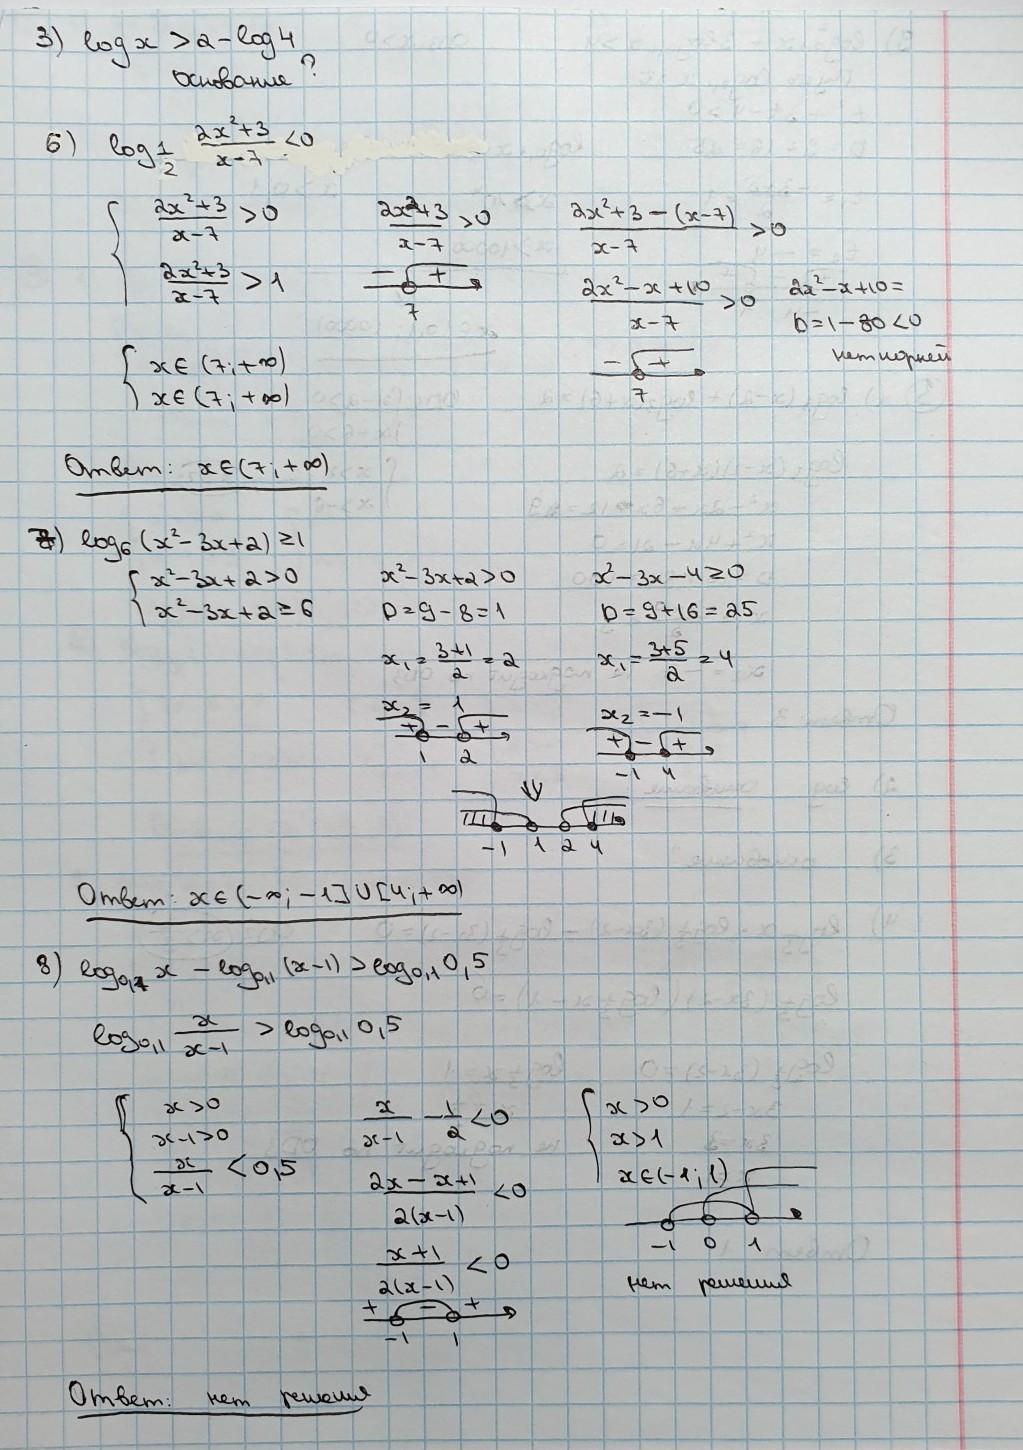 3) log x > 2 - log 4
основание?
6) log 1/2 (2x²+3)/(x-7) < 0
{ (2x²+3)/(x-7) > 0
(2x²+3)/(x-7) > 1
(2x²+3)/(x-7) > 0
- +
7
(2x²+3-(x-7))/(x-7) > 0
(2x²-x+10)/(x-7) > 0
2x²-x+10=
D=1-80<0
нет корней
- +
7
{ x∈(7;+∞)
x∈(7;+∞)
Ответ: x∈(7;+∞)
7) log₆(x²-3x+2)≥1
{ x²-3x+2>0
x²-3x+2≥6
x²-3x+2>0
D=9-8=1
x₁=(3+1)/2=2
x₂=1
+ - +
1 2
x²-3x-4≥0
D=9+16=25
x₁=(3+5)/2=4
x₂=-1
+ - +
-1 4
⇓
-1 1 2 4
Ответ: x∈(-∞;-1]∪[4;+∞)
8) log₀,₁ x - log₀,₁(x-1) > log₀,₁ 0,5
log₀,₁ x/(x-1) > log₀,₁ 0,5
{ x>0
x-1>0
x/(x-1) < 0,5
x/(x-1) - 1/2 < 0
(2x-x+1)/(2(x-1)) < 0
(x+1)/(2(x-1)) < 0
+ - +
-1 1
{ x>0
x>1
x∈(-1;1)
-1 0 1
нет решения
Ответ: нет решения